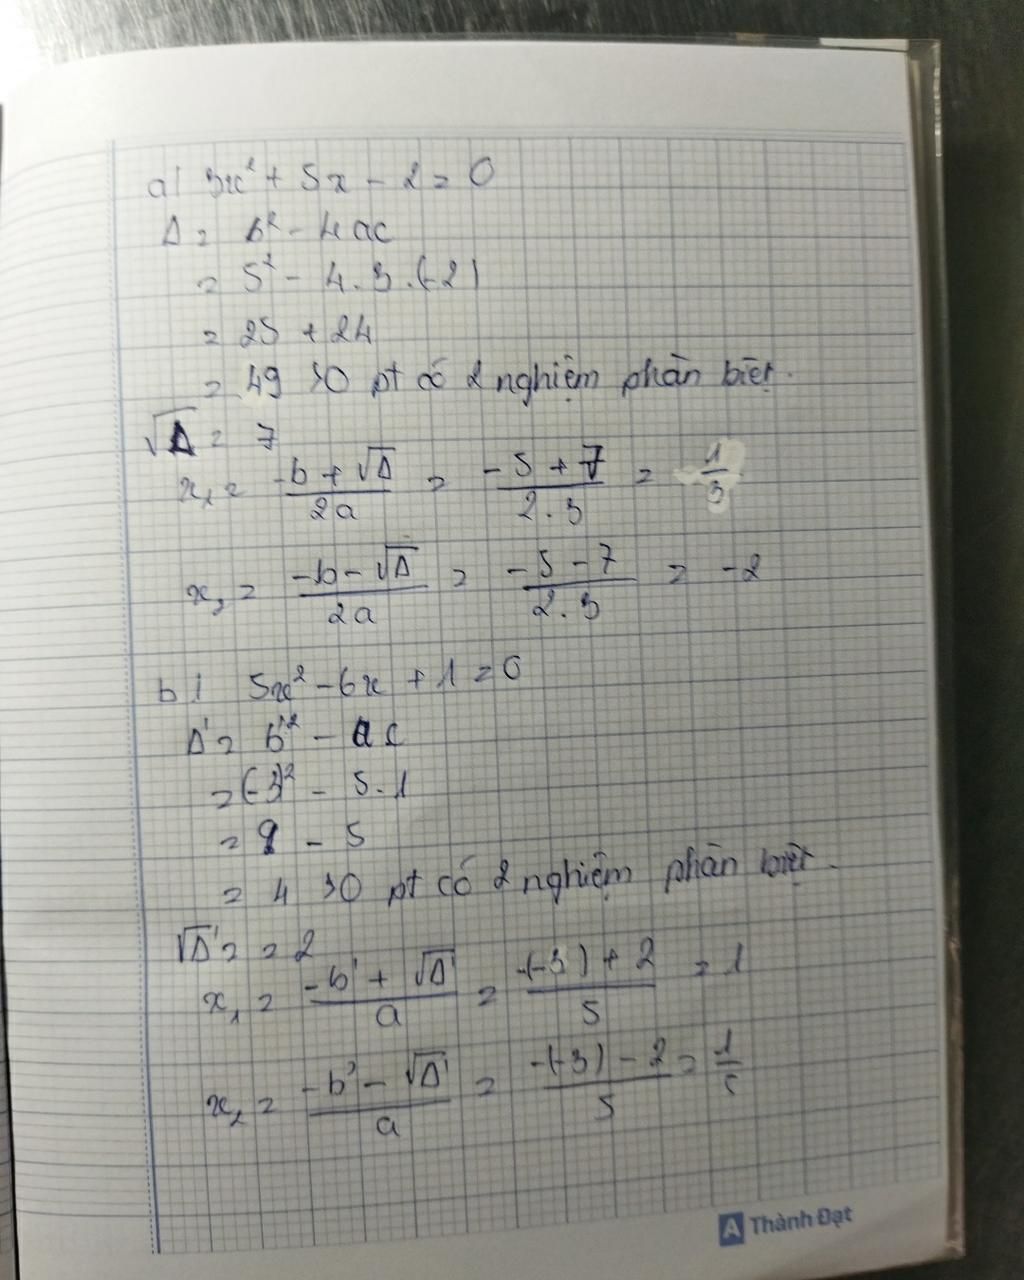 a) 3x² + 5x - 2 = 0
Δ = b² - 4ac
= 5² - 4.3.(-2)
= 25 + 24
= 49 > 0 pt có 2 nghiệm phân biệt.
√Δ = 7
x₁ = (-b + √Δ)/(2a) = (-5 + 7)/(2.3) = 1/3
x₂ = (-b - √Δ)/(2a) = (-5 - 7)/(2.3) = -2
b) 5x² - 6x + 1 = 0
Δ' = b'² - ac
= (-3)² - 5.1
= 9 - 5
= 4 > 0 pt có 2 nghiệm phân biệt.
√Δ' = = 2
x₁ = (-b' + √Δ')/a = (-(-3) + 2)/5 = 1
x₂ = (-b' - √Δ')/a = (-(-3) - 2)/5 = 1/5
A Thành Đạt